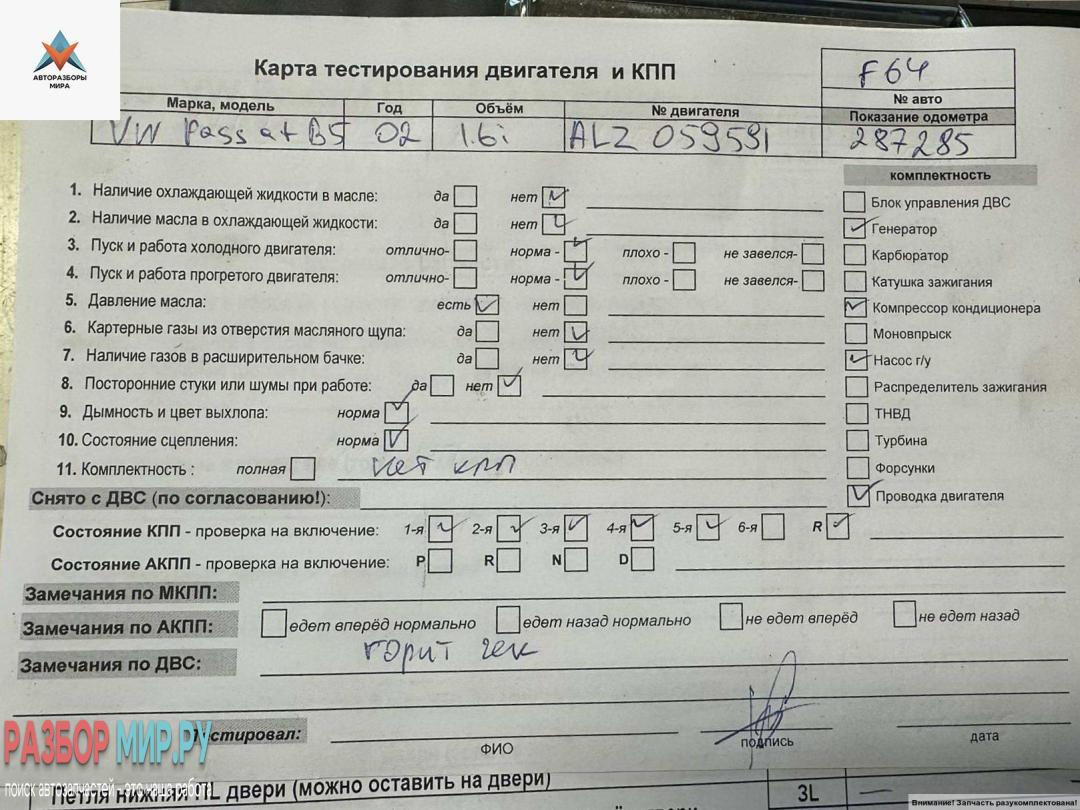 АВТОРАЗБОРЫ
МИРА
Карта тестирования двигателя и КПП
F64
№ авто
Марка, модель Год Объём № двигателя Показание одометра
VW Passat B5 02 1.6i ALZ 059591 287285
комплектность
1. Наличие охлаждающей жидкости в масле: да нет
Блок управления ДВС
2. Наличие масла в охлаждающей жидкости: да нет
Генератор
3. Пуск и работа холодного двигателя: отлично- норма - плохо - не завелся-
Карбюратор
4. Пуск и работа прогретого двигателя: отлично- норма - плохо - не завелся-
Катушка зажигания
5. Давление масла: есть нет
Компрессор кондиционера
6. Картерные газы из отверстия масляного щупа: да нет
Моновпрыск
7. Наличие газов в расширительном бачке: да нет
Насос г/у
8. Посторонние стуки или шумы при работе: да нет
Распределитель зажигания
9. Дымность и цвет выхлопа: норма
ТНВД
10. Состояние сцепления: норма
Турбина
11. Комплектность : полная нет кпп
Форсунки
Снято с ДВС (по согласованию!):
Проводка двигателя
Состояние КПП - проверка на включение: 1-я 2-я 3-я 4-я 5-я 6-я R
Состояние АКПП - проверка на включение: P R N D
Замечания по МКПП:
Замечания по АКПП: едет вперёд нормально едет назад нормально не едет вперёд не едет назад
Замечания по ДВС: горит чек
Тестировал:
ФИО подпись дата
РАЗБОР МИР.РУ
поиск автозапчастей - это наша работа
Петля нижняя ПL двери (можно оставить на двери) 3L
Внимание! Запчасть разукомплектована!